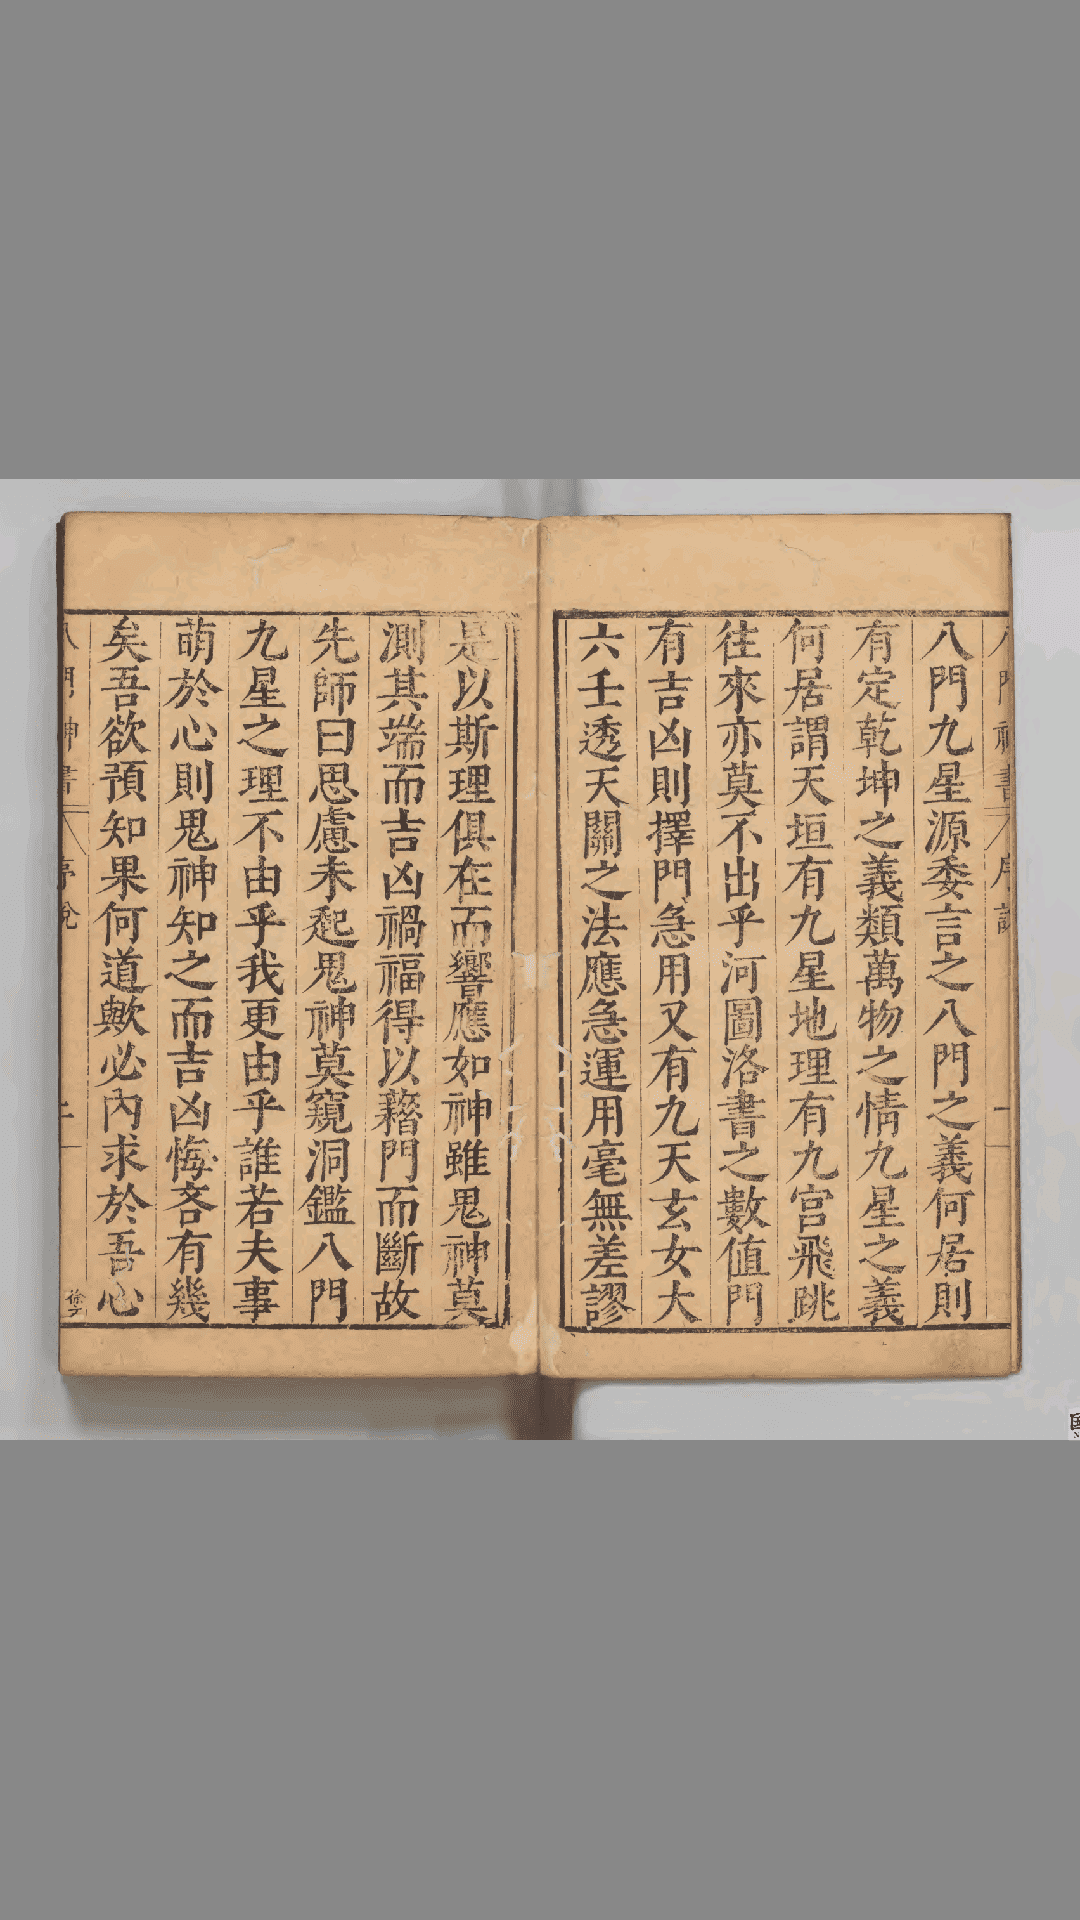 八門九星源委言之八門之義何居則
有定乾坤之義類萬物之情九星之義
何居謂天垣有九星地理有九宮飛跳
往來亦莫不出乎河圖洛書之數值門
有吉凶則擇門急用又有九天玄女大
六壬透天關之法應急運用毫無差謬
是以斯理俱在而響應如神雖鬼神莫
測其端而吉凶禍福得以藉門而斷故
先師曰思慮未起鬼神莫窺洞鑑八門
九星之理不由乎我更由乎誰若夫事
萌於心則鬼神知之而吉凶悔吝有幾
矣吾欲預知果何道歟必內求於吾心